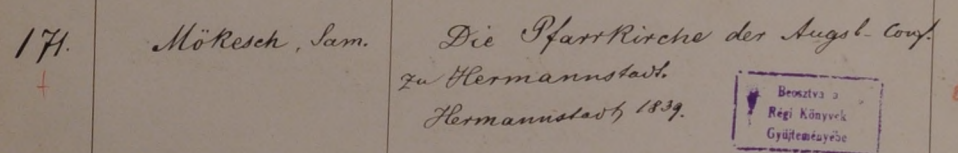 171. Mökesch, Sam. Die Pfarrkirche der Augsb- Conf.
zu Hermannstadt.
Hermannstadt, 1839.
Beosztva a
Régi Könyvek
Gyüjteményébe